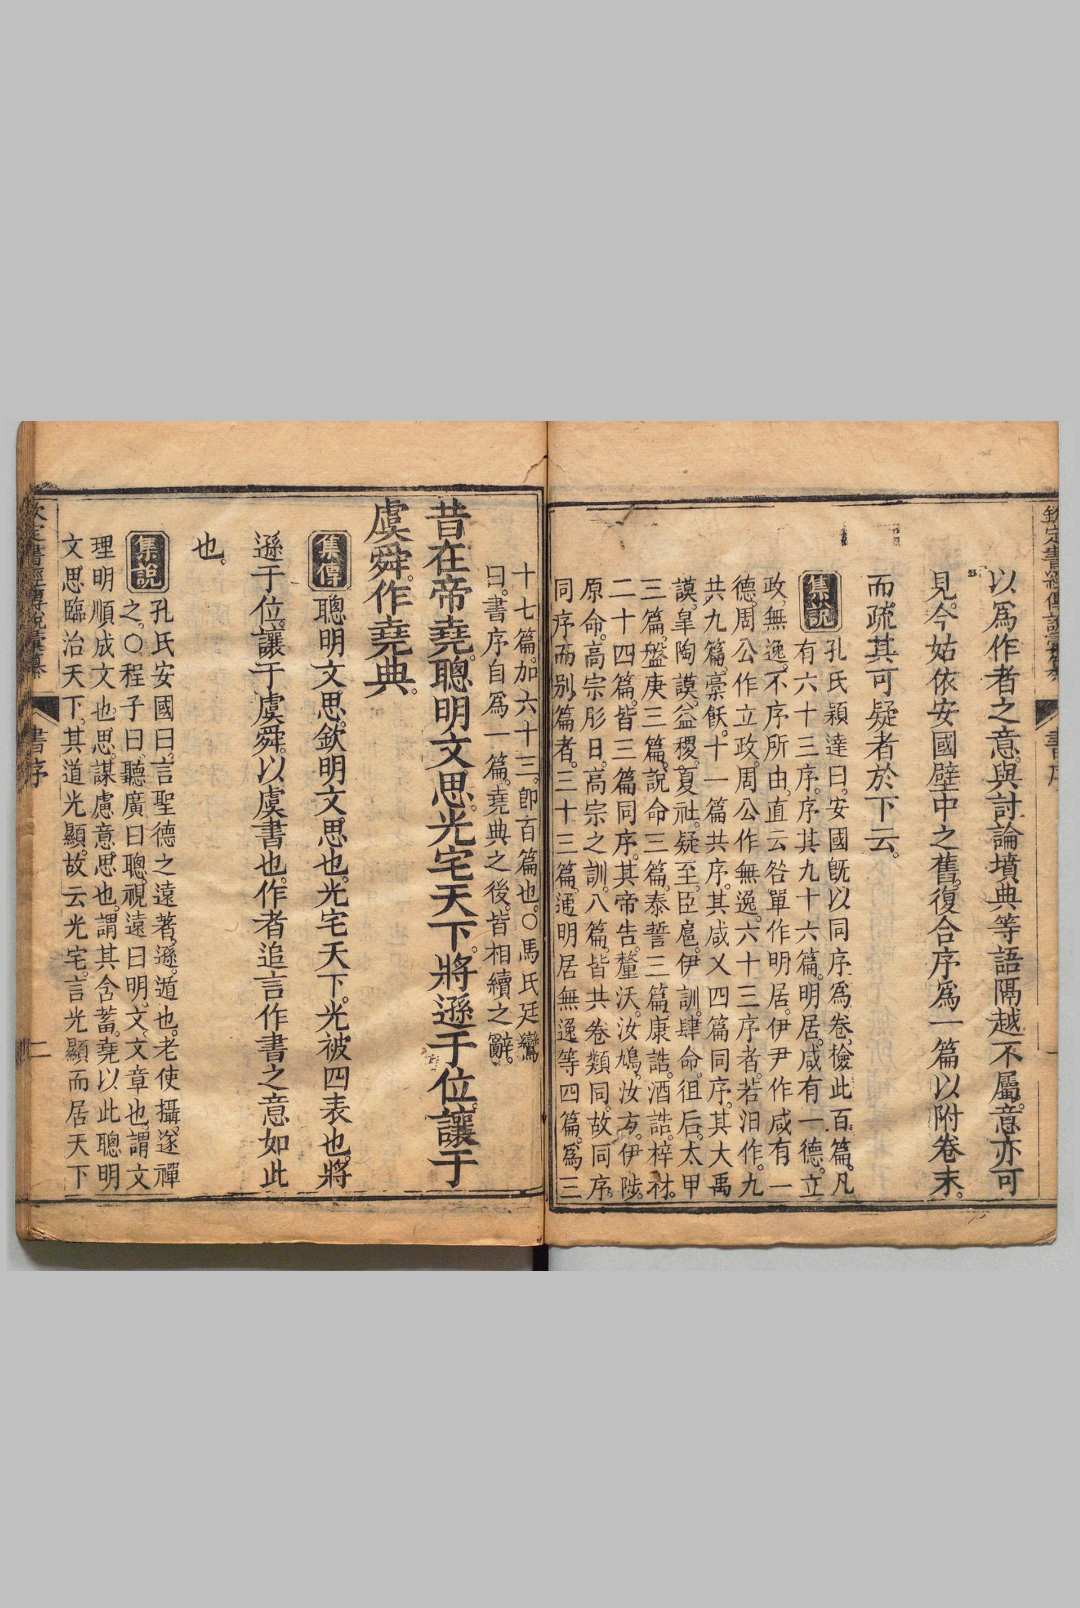 欽定書經傳說彙纂 書序
以爲作者之意與討論墳典等語隔越不屬意亦可
見今姑依安國壁中之舊復合序爲一篇以附卷末。
而疏其可疑者於下云。
集說
孔氏穎達曰。安國旣以同序爲卷檢此百篇凡
有六十三序。序其九十六篇。明居。咸有一德。立
政。無逸。不序所由。直云咎單作明居。伊尹作咸有一
德。周公作立政。周公作無逸。六十三序者。若汩作。九
共九篇。槀飫。十一篇共序。其咸乂四篇同序。其大禹
謨。皐陶謨。益稷。夏社。疑至。臣扈。伊訓。肆命。徂后。太甲
三篇。盤庚三篇。說命三篇。泰誓三篇。康誥。酒誥。梓材。
二十四篇。皆三篇同序。其帝告。釐沃。汝鳩。汝方。伊陟。
原命。高宗肜日。高宗之訓。八篇。皆共卷類同。故同序。
同序而別篇者。三十三篇。通明居無逸等四篇。爲三
十七篇。加六十三。卽百篇也。○馬氏廷鸞
曰。書序自爲一篇。堯典之後。皆相續之辭。
昔在帝堯。聰明文思。光宅天下。將遜于位。讓于
虞舜。作堯典。
集傳
聰明文思。欽明文思也。光宅天下。光被四表也。將
遜于位。讓于虞舜。以虞書也。作者追言作書之意如此
也。
集說
孔氏安國曰。言聖德之遠著。遜。遁也。老使攝。遂禪
之。○程子曰。聽廣曰聰。視遠曰明。文。文章也。謂文
理明順成文也。思。謀慮意思也。謂其含蓄。堯以此聰明
文思臨治天下。其道光顯。故云光宅。言光顯而居天下
欽定書經傳說彙纂 書序 二